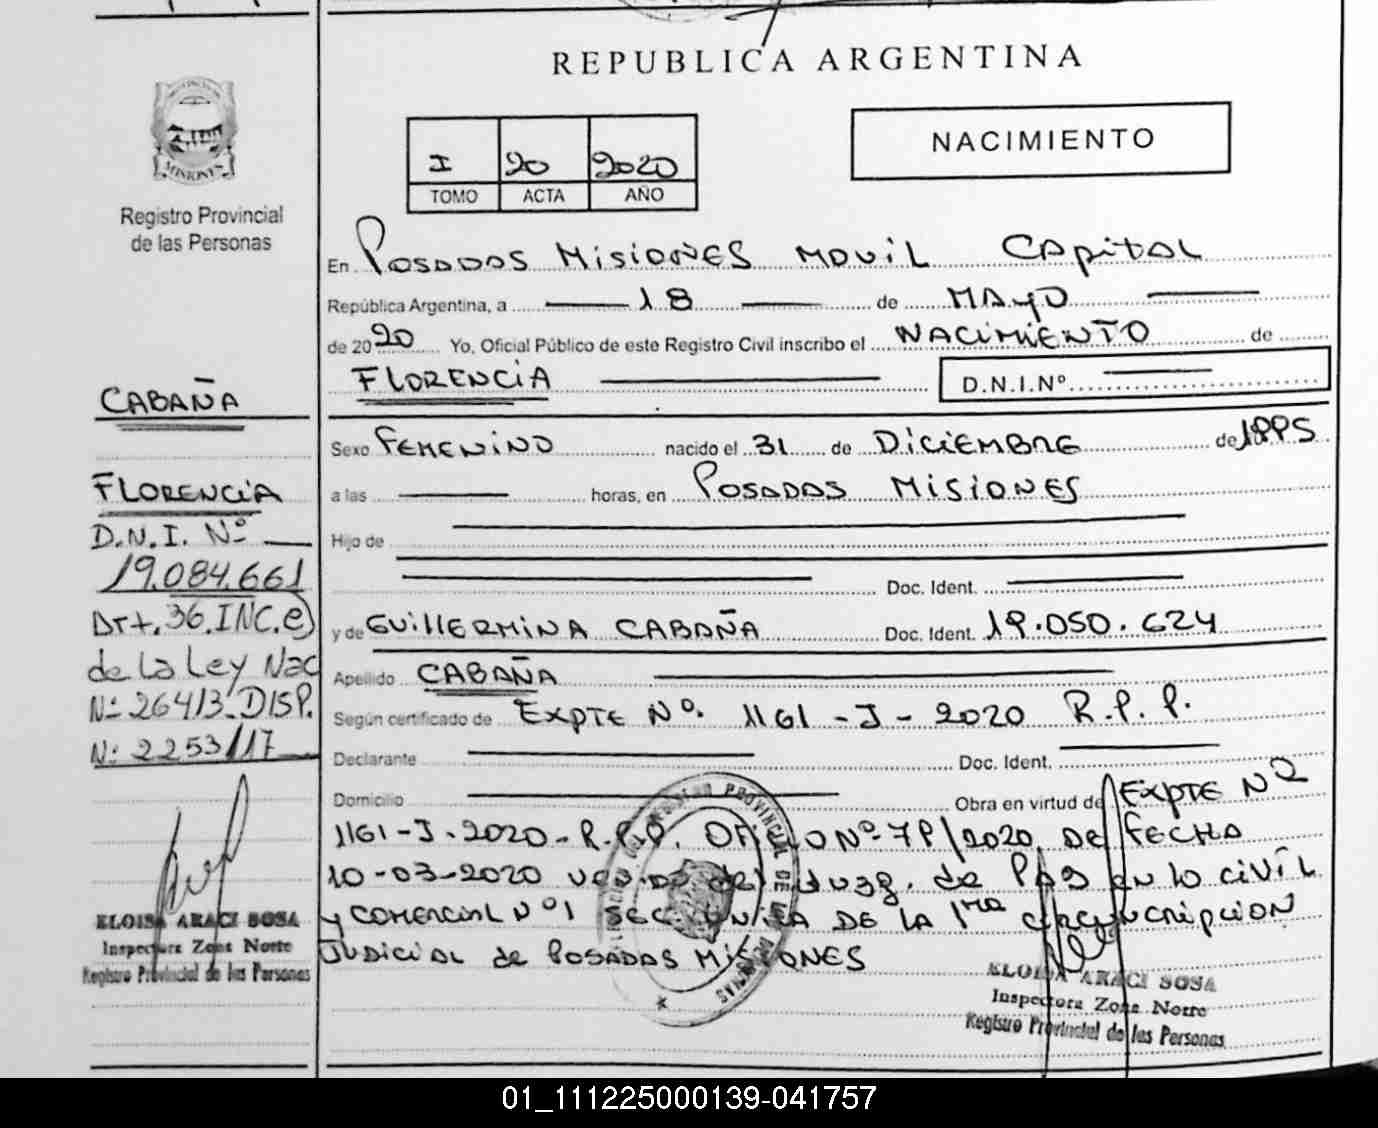 REPUBLICA ARGENTINA
NACIMIENTO
I 20 2020
TOMO ACTA AÑO
MISIONES
Registro Provincial
de las Personas
En POSADAS MISIONES MOVIL CAPITAL
República Argentina, a 18 de MAYO
de 2020 Yo, Oficial Público de este Registro Civil inscribo el NACIMIENTO de
FLORENCIA D.N.I.Nº
Sexo FEMENINO nacido el 31 de DICIEMBRE de 1995
a las horas, en POSADAS MISIONES
Hijo de
Doc. Ident.
y de GUILLERMINA CABAÑA Doc. Ident. 19.050.624
Apellido CABAÑA
Según certificado de EXPTE Nº. 1161-J-2020 R.P.P.
Declarante Doc. Ident.
Domicilio Obra en virtud de EXPTE Nº
1161-J-2020-R.P.P. OFICIO Nº 79/2020, DE FECHA
10-03-2020 del Juzg. de PAZ en lo civil
y COMERCIAL Nº1 SEC. UNICA DE LA 1ra circunscripcion
JUDICIAL de POSADAS MISIONES
ELOISA ARACI SOSA
Inspectora Zona Norte
Registro Provincial de las Personas
CABAÑA
FLORENCIA
D.N.I. Nº
19.084.661
Art. 36.INC.e)
de la Ley Nac
Nº 26413.DISP.
Nº 2253/17
ELOISA ARACI SOSA
Inspectora Zona Norte
Registro Provincial de las Personas
01_111225000139-041757